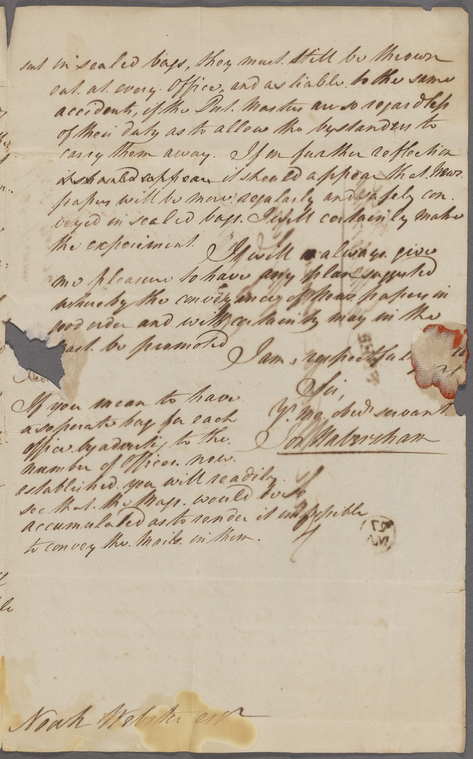 sent in sealed bags, they must still be thrown
out at every Office, and as liable to the same
accidents, if the Post Masters are so regardless
of their duty as to allow the bystanders to
carry them away. If on further reflection
it should appear it should appear that News
papers will be more regularly and safely con-
veyed in sealed bags. I will certainly make
the experiment.
It will always give
me pleasure to have any plan suggested
whereby the conveyance of News papers in
good order and with certainty may in the
least be promoted
I am, respectful
Sir,
Yr. mo. obed. servant
Jos Habersham
If you mean to have
a seperate bag for each
office by adverting to the
number of Offices now
established you will readily
see that the Bags would be so
accumulated as to render it impossible
to convey the Mails in them.
Noah Webster esqr